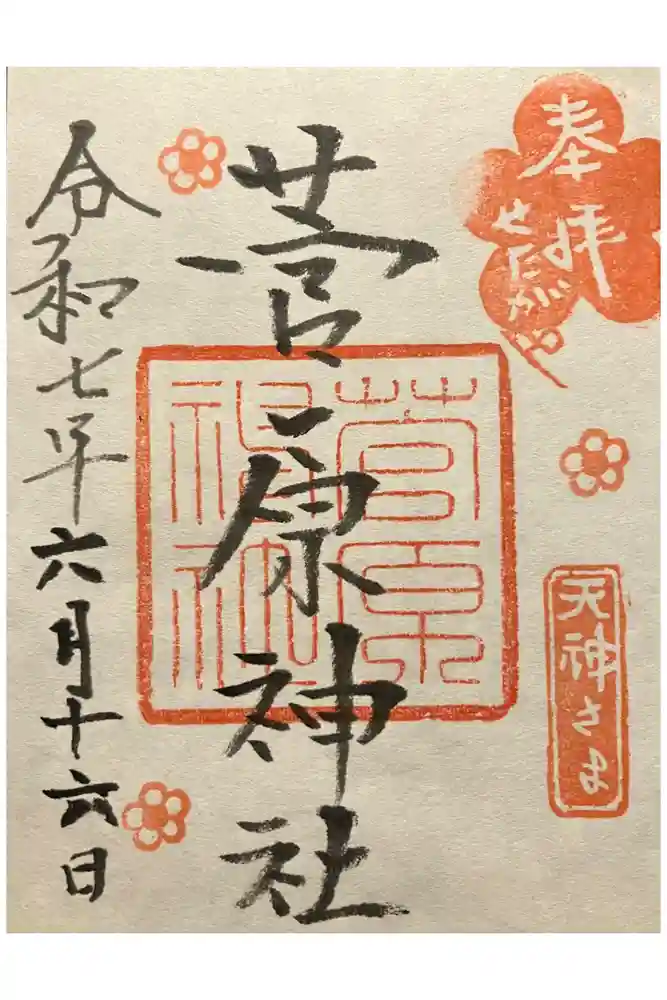 奉拝
せたがや
天神さま
菅原神社
菅原神社
令和七年六月十六日